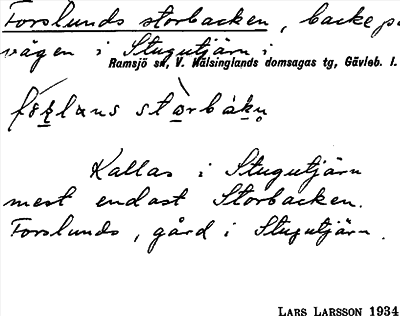 Forslunds storbacken, backe på
vägen i Stugutjärn i
Ramsjö sn, V. Hälsinglands domsagas tg, Gävleb. l.
Kallas i Stugutjärn
mest endast Storbacken.
Forslunds, gård i Stugutjärn.
LARS LARSSON 1934